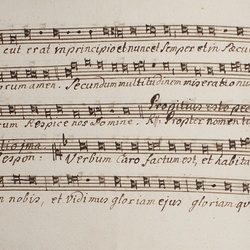 cut erat in principio et nunc et Semper et in Sæcu
orum amen. Secundum multitudinem miserationu
Propitius esto pe
rum Respice nos Domine. Propter nomen tu
espon: Verbum Caro factum est, et habita
n nobis, et vidimus gloriam ejus gloriam qu